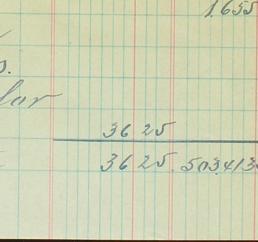 1655
s.
lor
3625
3625 503413